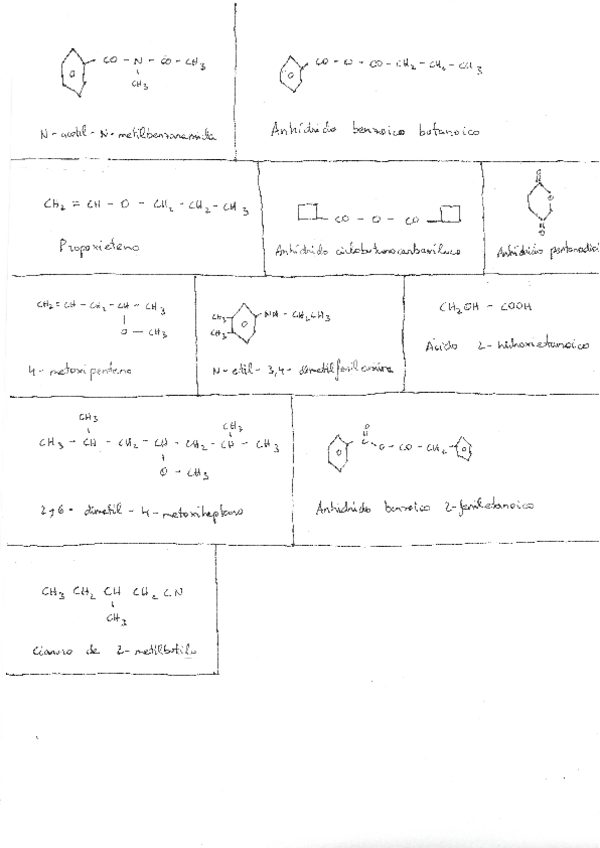 CO - N - CO - CH3
CH3
N - acetil - N - metilbenzanamida
CO - O - CO - CH2 - CH2 - CH3
Anhídrido benzoico butanoico
CH2 = CH - O - CH2 - CH2 - CH3
Propoxieteno
CO - O - CO
Anhídrido ciclobutanocarboxílico
O
O
O
Anhídrido pentanodioi
CH2 = CH - CH2 - CH - CH3
O - CH3
4 - metoxipenteno
CH3
CH3
NH - CH2CH3
N - etil - 3,4 - dimetilfenilamina
CH2OH - COOH
Ácido 2 - hidroxietanoico
CH3
CH3
CH3 - CH - CH2 - CH - CH2 - CH - CH3
O - CH3
2,6 - dimetil - 4 - metoxiheptano
O
C
O - CO - CH2
Anhídrido benzoico 2-feniletanoico
CH3 CH2 CH CH2 CN
CH3
Cianuro de 2-metilbutilo